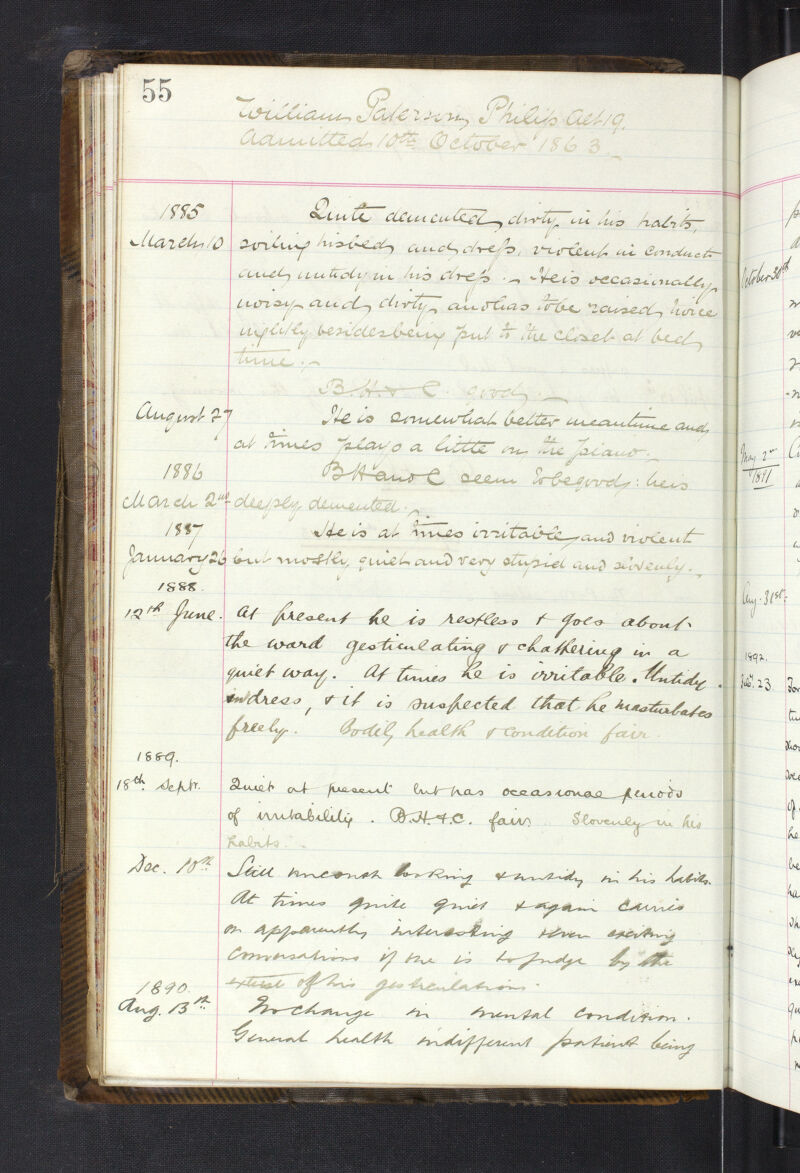 55
William Paterson Philip Aet 19.
Admitted 10th October 1863
1885
March 10
Quite demented, dirty in his habits,
soiling his bed and dress, violent in conduct
and untidy in his dress. He is occasionally
noisy and dirty and has to be raised twice
nightly besides being put to the closet at bed
time.
B H & C. good.
August 27
He is somewhat better meantime and
at times plays a little on the piano.
1886
March 2nd
B H and C seem to be good: he is
deeply demented.
1887
January 26
He is at times irritable and violent
but mostly quiet and very stupid and slovenly.
1888.
12th June.
At present he is restless & goes about
the ward gesticulating & chattering in a
quiet way. At times he is irritable. Untidy
in dress, & it is suspected that he masturbates
freely. Bodily health & condition fair.
1889.
18th Septr.
Quiet at present but has occasional periods
of irritability. B.H.&C. fair Slovenly in his
habits.
Dec. 10th
Still uncouth looking & untidy in his habits.
At times quite quiet & again carries
on apparently interesting & even exciting
conversations if one is to judge by the
extent of his gesticulations.
1890.
Aug. 13th
No change in mental condition.
General health indifferent patient being
October 30th
May 2nd
1891
Aug. 31st
1892.
23